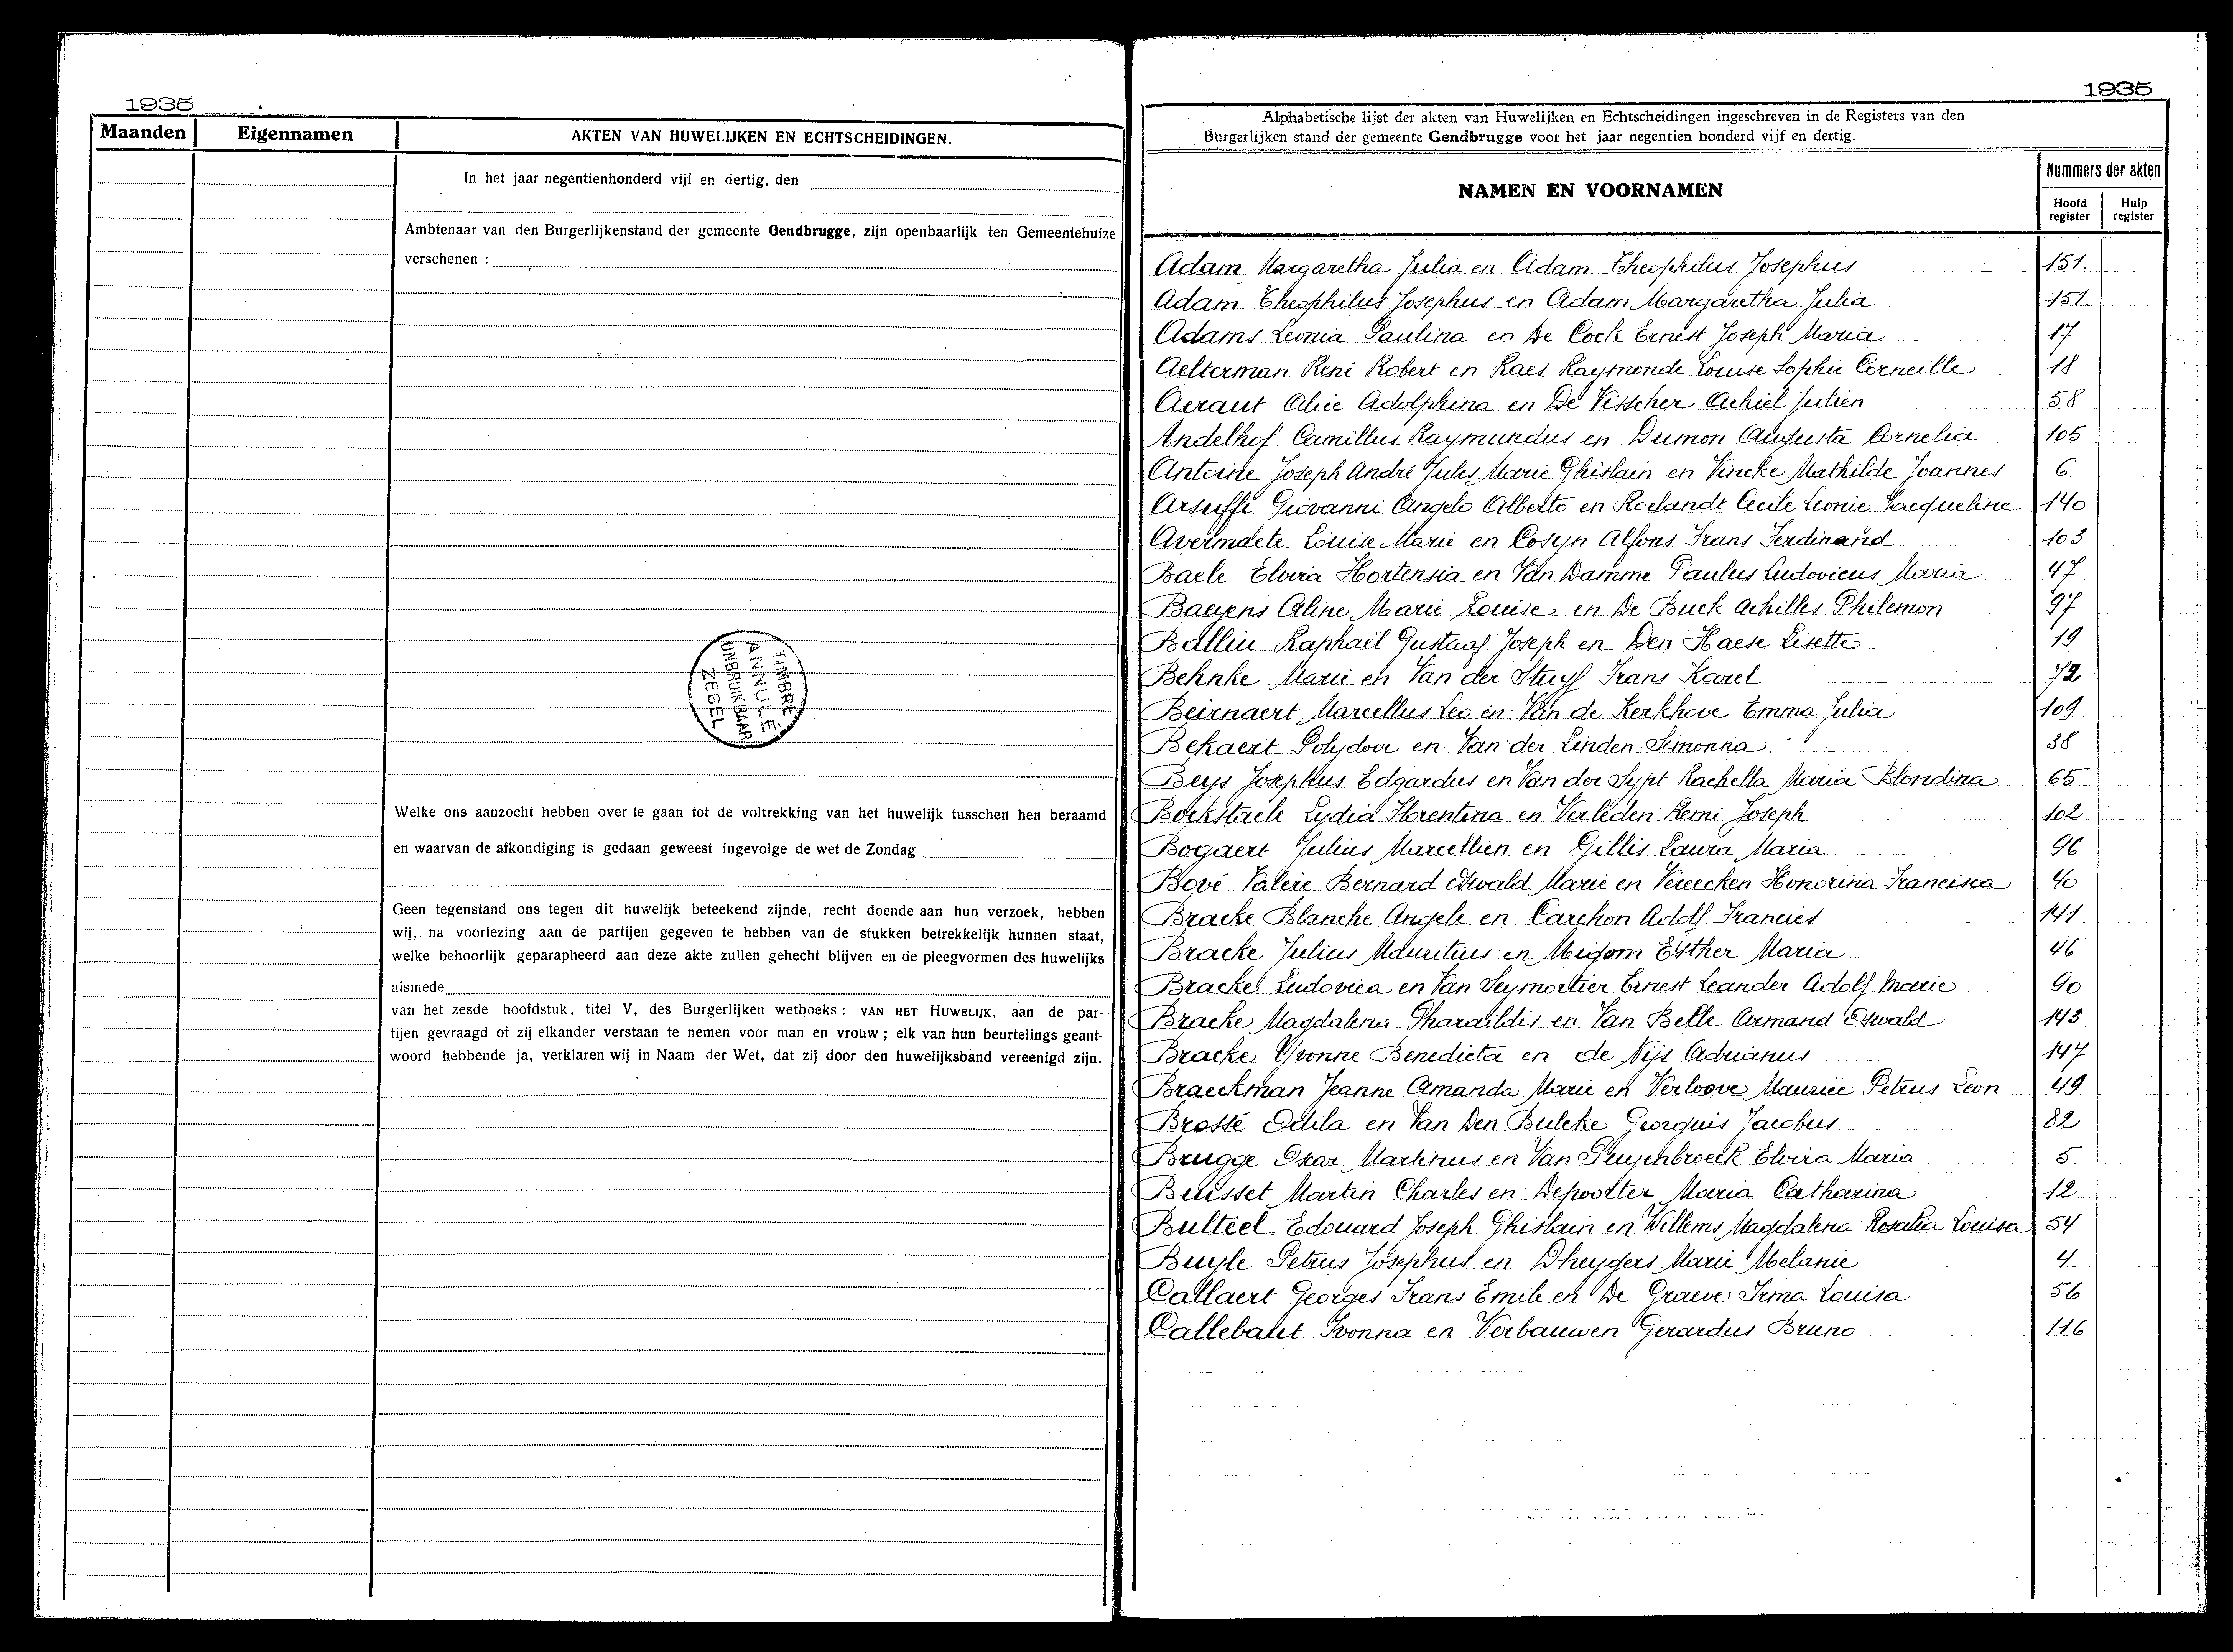 1935
Maanden
Eigennamen
AKTEN VAN HUWELIJKEN EN ECHTSCHEIDINGEN.
In het jaar negentienhonderd vijf en dertig, den
Ambtenaar van den Burgerlijkenstand der gemeente Gendbrugge, zijn openbaarlijk ten Gemeentehuize
verschenen :
TIMBRE
ANNULÉ
ONBRUIKBAAR
ZEGEL
Welke ons aanzocht hebben over te gaan tot de voltrekking van het huwelijk tusschen hen beraamd
en waarvan de afkondiging is gedaan geweest ingevolge de wet de Zondag
Geen tegenstand ons tegen dit huwelijk beteekend zijnde, recht doende aan hun verzoek, hebben
wij, na voorlezing aan de partijen gegeven te hebben van de stukken betrekkelijk hunnen staat,
welke behoorlijk geparapheerd aan deze akte zullen gehecht blijven en de pleegvormen des huwelijks
alsmede
van het zesde hoofdstuk, titel V, des Burgerlijken wetboeks : VAN HET HUWELIJK, aan de par-
tijen gevraagd of zij elkander verstaan te nemen voor man en vrouw ; elk van hun beurtelings geant-
woord hebbende ja, verklaren wij in Naam der Wet, dat zij door den huwelijksband vereenigd zijn.
1935
Alphabetische lijst der akten van Huwelijken en Echtscheidingen ingeschreven in de Registers van den
Burgerlijken stand der gemeente Gendbrugge voor het jaar negentien honderd vijf en dertig.
NAMEN EN VOORNAMEN
Nummers der akten
Hoofd register
Hulp register
Adam Margaretha Julia en Adam Theophilus Josephus 151.
Adam Theophilus Josephus en Adam Margaretha Julia 151.
Adams Leonia Paulina en De Cock Ernest Joseph Maria 17
Aelterman René Robert en Raes Raymonde Louise Sophie Corneille 18
Aeraut Alice Adolphina en De Visscher Achiel Julien 58
Andelhof Camillus Raymundus en Dumon Augusta Cornelia 105
Antoine Joseph André Jules Marie Ghislain en Vincke Mathilde Joannes 6
Arsuffi Giovanni Angelo Alberto en Roelandt Cecile Leonie Jacqueline 140
Avermaete Louise Marie en Cosyn Alfons Frans Ferdinand 103
Baele Elvira Hortensia en Van Damme Paulus Ludovicus Maria 47
Baeyens Celine Marie Louise en De Buck Achilles Philemon 97
Balliu Raphaël Gustaaf Joseph en Den Haese Lisette 19
Behnke Marie en Van der Stuyf Frans Karel 72
Beirnaert Marcellus Leo en Van de Kerkhove Emma Julia 109
Bekaert Polydoor en Van der Linden Simonna 38
Beys Josephus Edgardus en Van der Sypt Rachella Maria Blondina 65
Bockstaele Lydia Florentina en Verleden Remi Joseph 102
Bogaert Julius Marcellien en Gillis Laura Maria 96
Bové Valère Bernard Oswald Marie en Vereecken Honorina Francisca 40
Bracke Blanche Angele en Carchon Adolf Francies 141
Bracke Julius Mauritius en Migom Esther Maria 46
Bracke Ludovica en Van Seymortier Ernest Leander Adolf Marie 90
Bracke Magdalena Pharaïldis en Van Belle Armand Oswald 143
Bracke Yvonne Benedicta en de Nijs Adrianus 147
Braeckman Jeanne Amanda Marie en Verloove Maurice Petrus Leon 49
Brossé Odila en Van Den Bulcke Georguis Jacobus 82
Brugge Oscar Martinus en Van Puyenbroeck Elvira Maria 5
Buisset Martin Charles en Depoorter Maria Catharina 12
Bulteel Edouard Joseph Ghislain en Willems Magdalena Rosalia Louisa 54
Buyle Petrus Josephus en Dheygers Marie Melanie 4
Callaert Georges Frans Emile en De Graeve Irma Louisa 56
Callebaut Ivonna en Verbauwen Gerardus Bruno 116